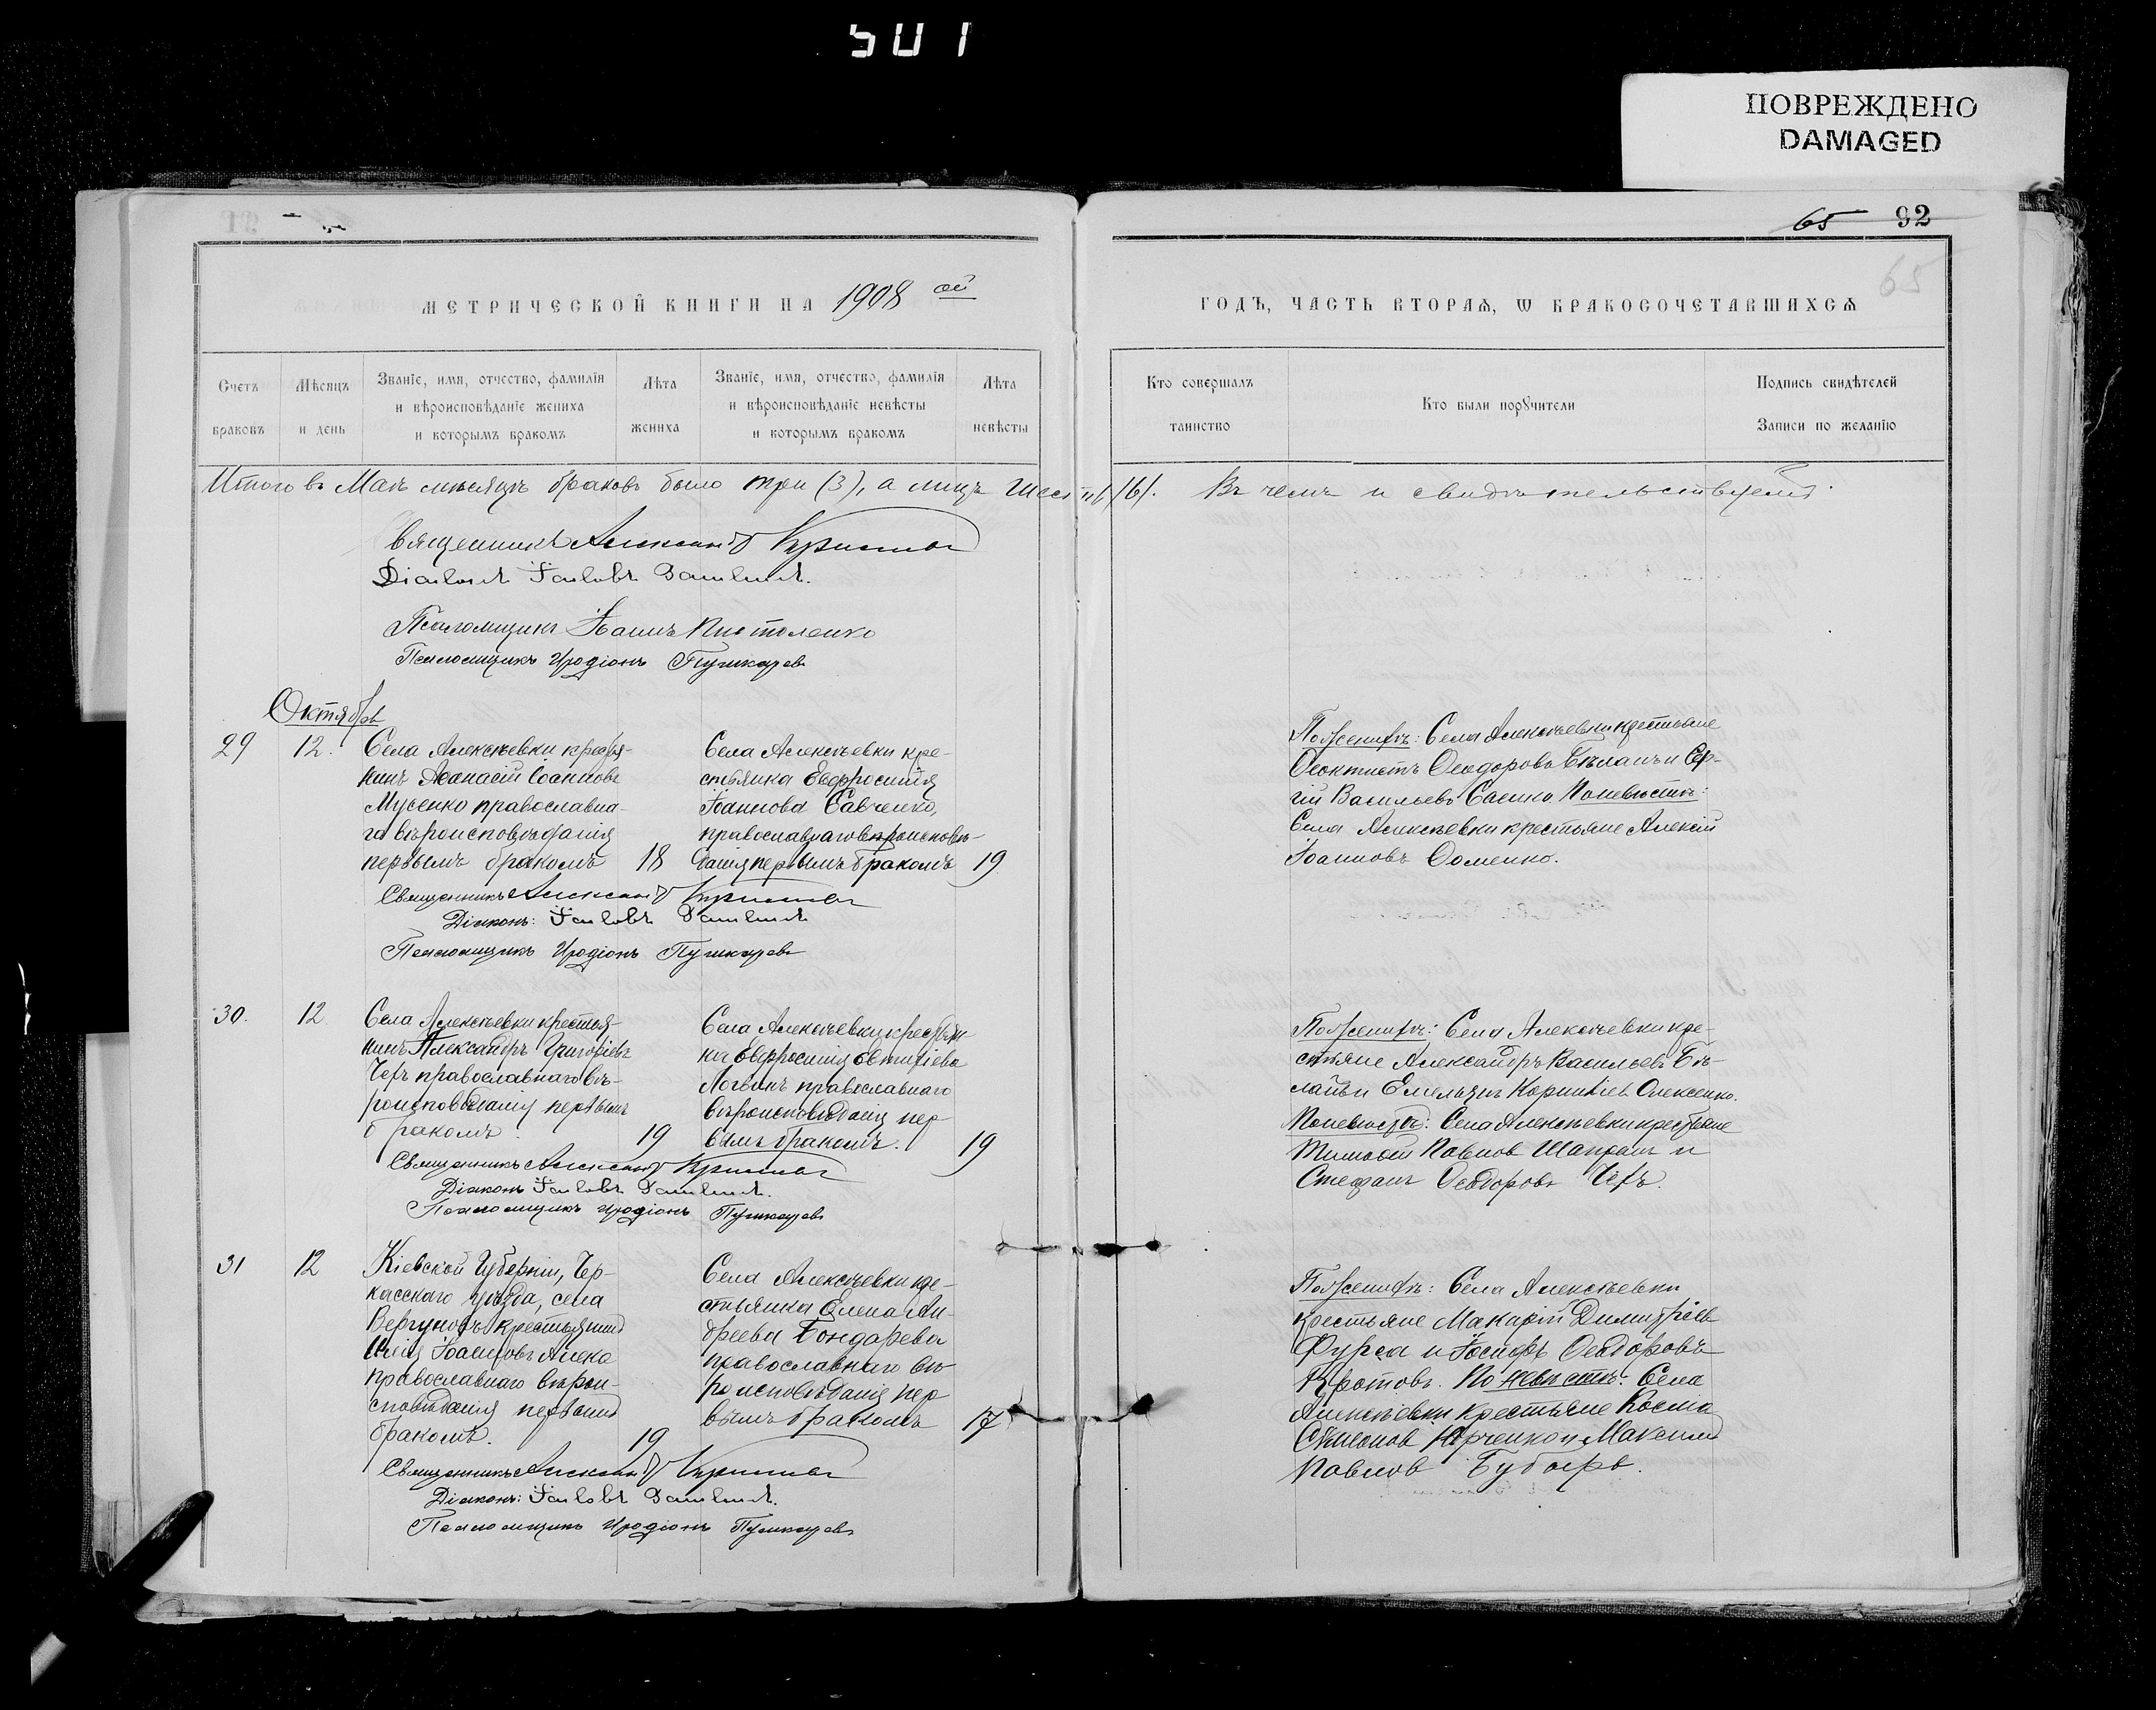 501
ПОВРЕЖДЕНО
DAMAGED
65 92
65
МЕТРИЧЕСКОЙ КНИГИ НА 1908 ой
ГОДЪ, ЧАСТЬ ВТОРАѦ, Ѡ БРАКОСОЧЕТАВШИХСѦ
Счетъ браковъ
Мѣсяцъ и день
Званіе, имя, отчество, фамилія и вѣроисповѣданіе жениха и которымъ бракомъ
Лѣта жениха
Званіе, имя, отчество, фамилія и вѣроисповѣданіе невѣсты и которымъ бракомъ
Лѣта невѣсты
Кто совершалъ таинство
Кто были порꙋчители
Подпись свидѣтелей Записи по желанію
Итого въ Маѣ мѣсяцѣ браковъ было три (3), а лицъ шесть (6). Въ чемъ и свидѣтельствуемъ.
Священникъ
Діаконъ Іаковъ
Псаломщикъ Іоаннъ Пистоленко
Псаломщикъ Иродіонъ Пушкаревъ
Октябрь
29 12. Села Алексѣевки крестья-
нинъ Аѳанасій Іоанновъ
Мусенко православна-
го вѣроисповѣданія
первымъ бракомъ 18
Села Алексѣевки кре-
стьянка Евфросинія
Іоаннова Савченко,
православнаго вѣроисповѣ-
данія первымъ бракомъ 19
Священникъ
Діаконъ: Іаковъ
Псаломщикъ Иродіонъ Пушкаревъ
По женихѣ: Села Алексѣевки крестьяне
Ѳеоктистъ Ѳеодоровъ Бѣланъ и Сер-
гій Васильевъ Саенко. По невѣстѣ:
Села Алексѣевки крестьяне Алексій
Іоанновъ Ѳоменко.
30. 12 Села Алексѣевки крестья-
нинъ Александръ Григоріевъ
Чехъ православнаго вѣ-
роисповѣданія первымъ
бракомъ. 19
Села Алексѣевки крестьян-
ка Евфросинія Евтихіева
Логвинъ православнаго
вѣроисповѣданія пер
вымъ бракомъ. 19
Священникъ
Діаконъ Іаковъ
Псаломщикъ Иродіонъ Пушкаревъ
По женихѣ: Села Алексѣевки кре-
стьяне Александръ Васильевъ Бѣ-
ланъ и Емельянъ Корниліев Олексенко.
По невѣстѣ: Села Алексѣевки крестьяне
Тимоѳей Павлов Шапранъ и
Стефанъ Ѳеодоровъ Чехъ.
31 12 Кіевской Губерніи, Чер-
касскаго уѣзда, села
Вергуновъ крестьянинъ
Илія Іоанновъ
православнаго вѣрои-
сповѣданія первымъ
бракомъ. 19
Села Алексѣевки кре-
стьянка Елена Ан-
дреева Бондарева
православнаго вѣ-
роисповѣданія пер
вымъ бракомъ 17
Священникъ
Діаконъ: Іаковъ
Псаломщикъ Иродіонъ Пушкаревъ
По женихѣ: Села Алексѣевки
крестьяне Макарій Димитріев
Фурса и Іосифъ Ѳеодоровъ
Кротовъ. По невѣстѣ: Села
Алексѣевки крестьяне Косма
Симеонов Юрченко и Максимъ
Павлов